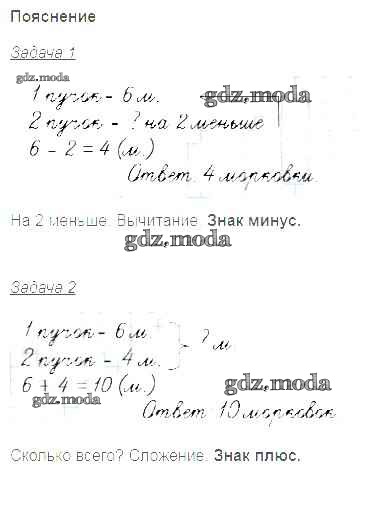 Пояснение
Задача 1
gdz.moda
1 пучок - 6 м. gdz.moda
2 пучок - ? на 2 меньше
6 - 2 = 4 (м.)
Ответ 4 морковки.
На 2 меньше. Вычитание. Знак минус.
gdz.moda
Задача 2
1 пучок - 6 м.
2 пучок - 4 м. - ? м
6 + 4 = 10 (м.) gdz.moda
gdz.moda
Ответ 10 морковок
Сколько всего? Сложение. Знак плюс.